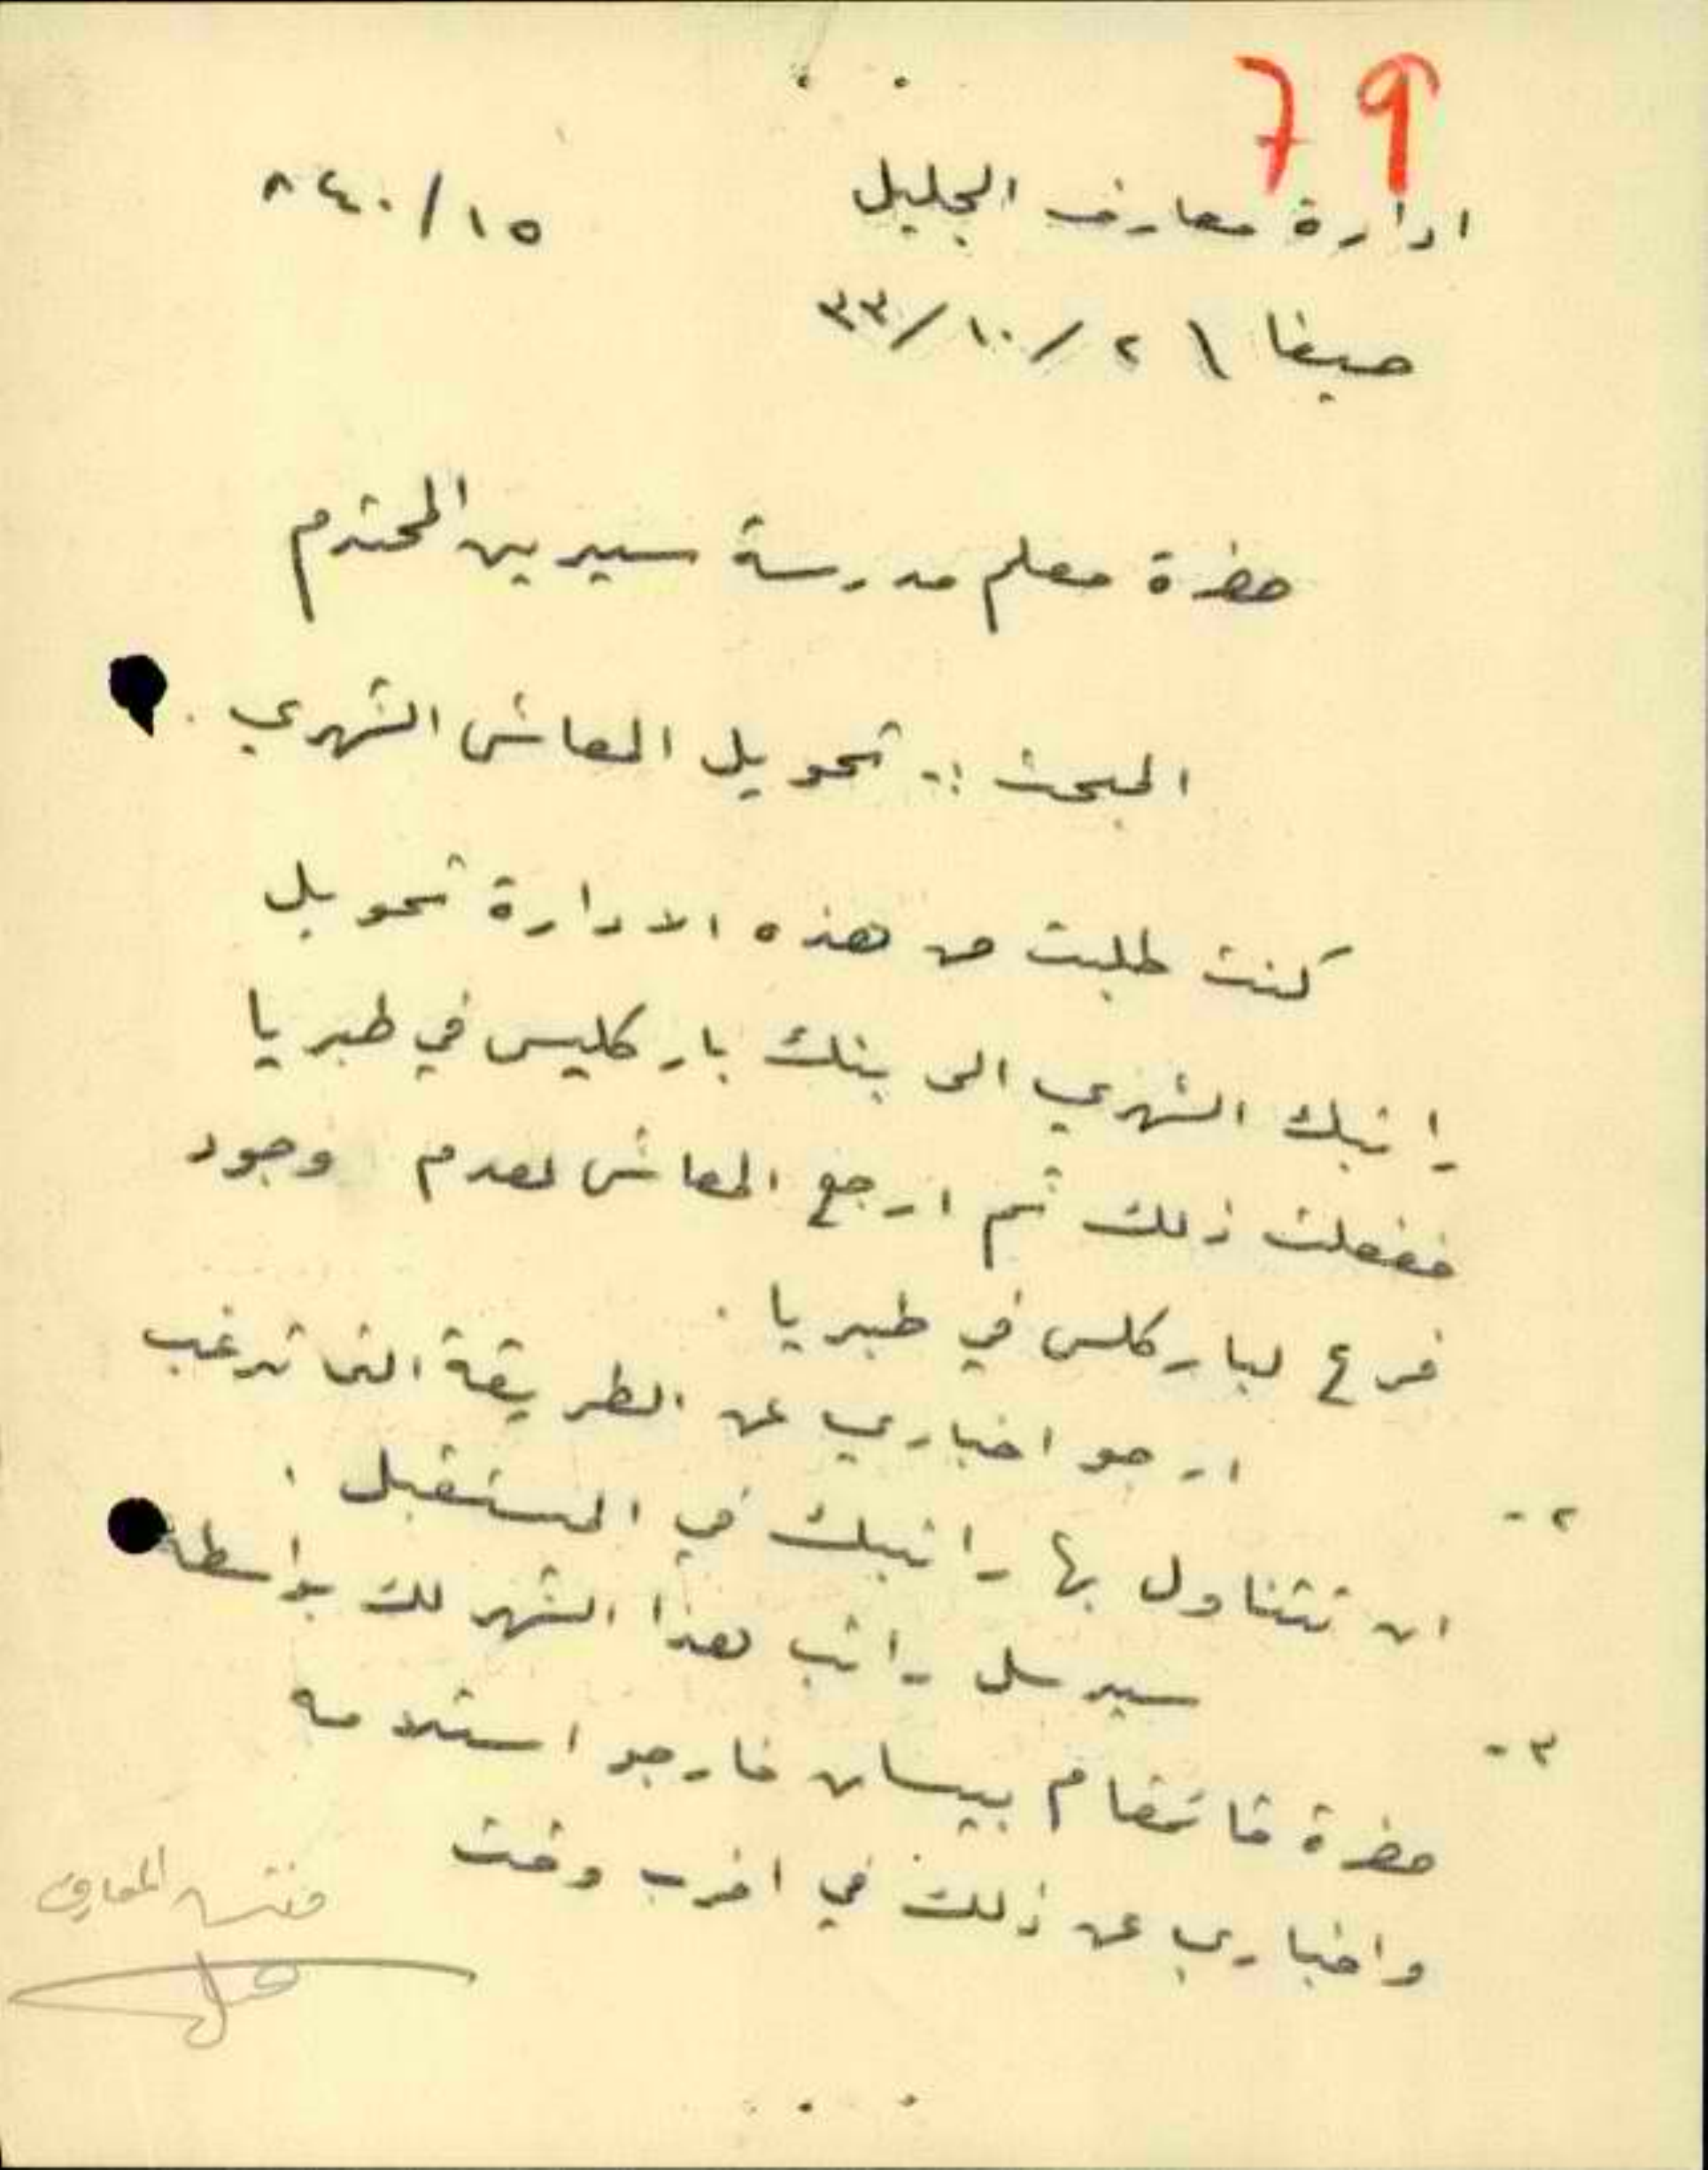 79
ادارة معارف الجليل
٨٤٠/١٥
حيفا ٢١/١٠/٣٣
حضرة معلم مدرسة سيرين المحترم
المبحث :- تحويل المعاش الشهري .
كنت طلبت من هذه الادارة تحويل
راتبك الشهري الى بنك باركليس في طبريا
ففعلت ذلك ثم ارجع المعاش لعدم وجود
فرع لباركلس في طبريا .
٢- ارجو اخباري عن الطريقة التي ترغب
ان تتناول بها راتبك في المستقبل .
٣- سيرسل راتب هذا الشهر لك بواسطة
حضرة قائمقام بيسان فارجو استلامه
واخباري عن ذلك في اقرب وقت
مفتش المعارف